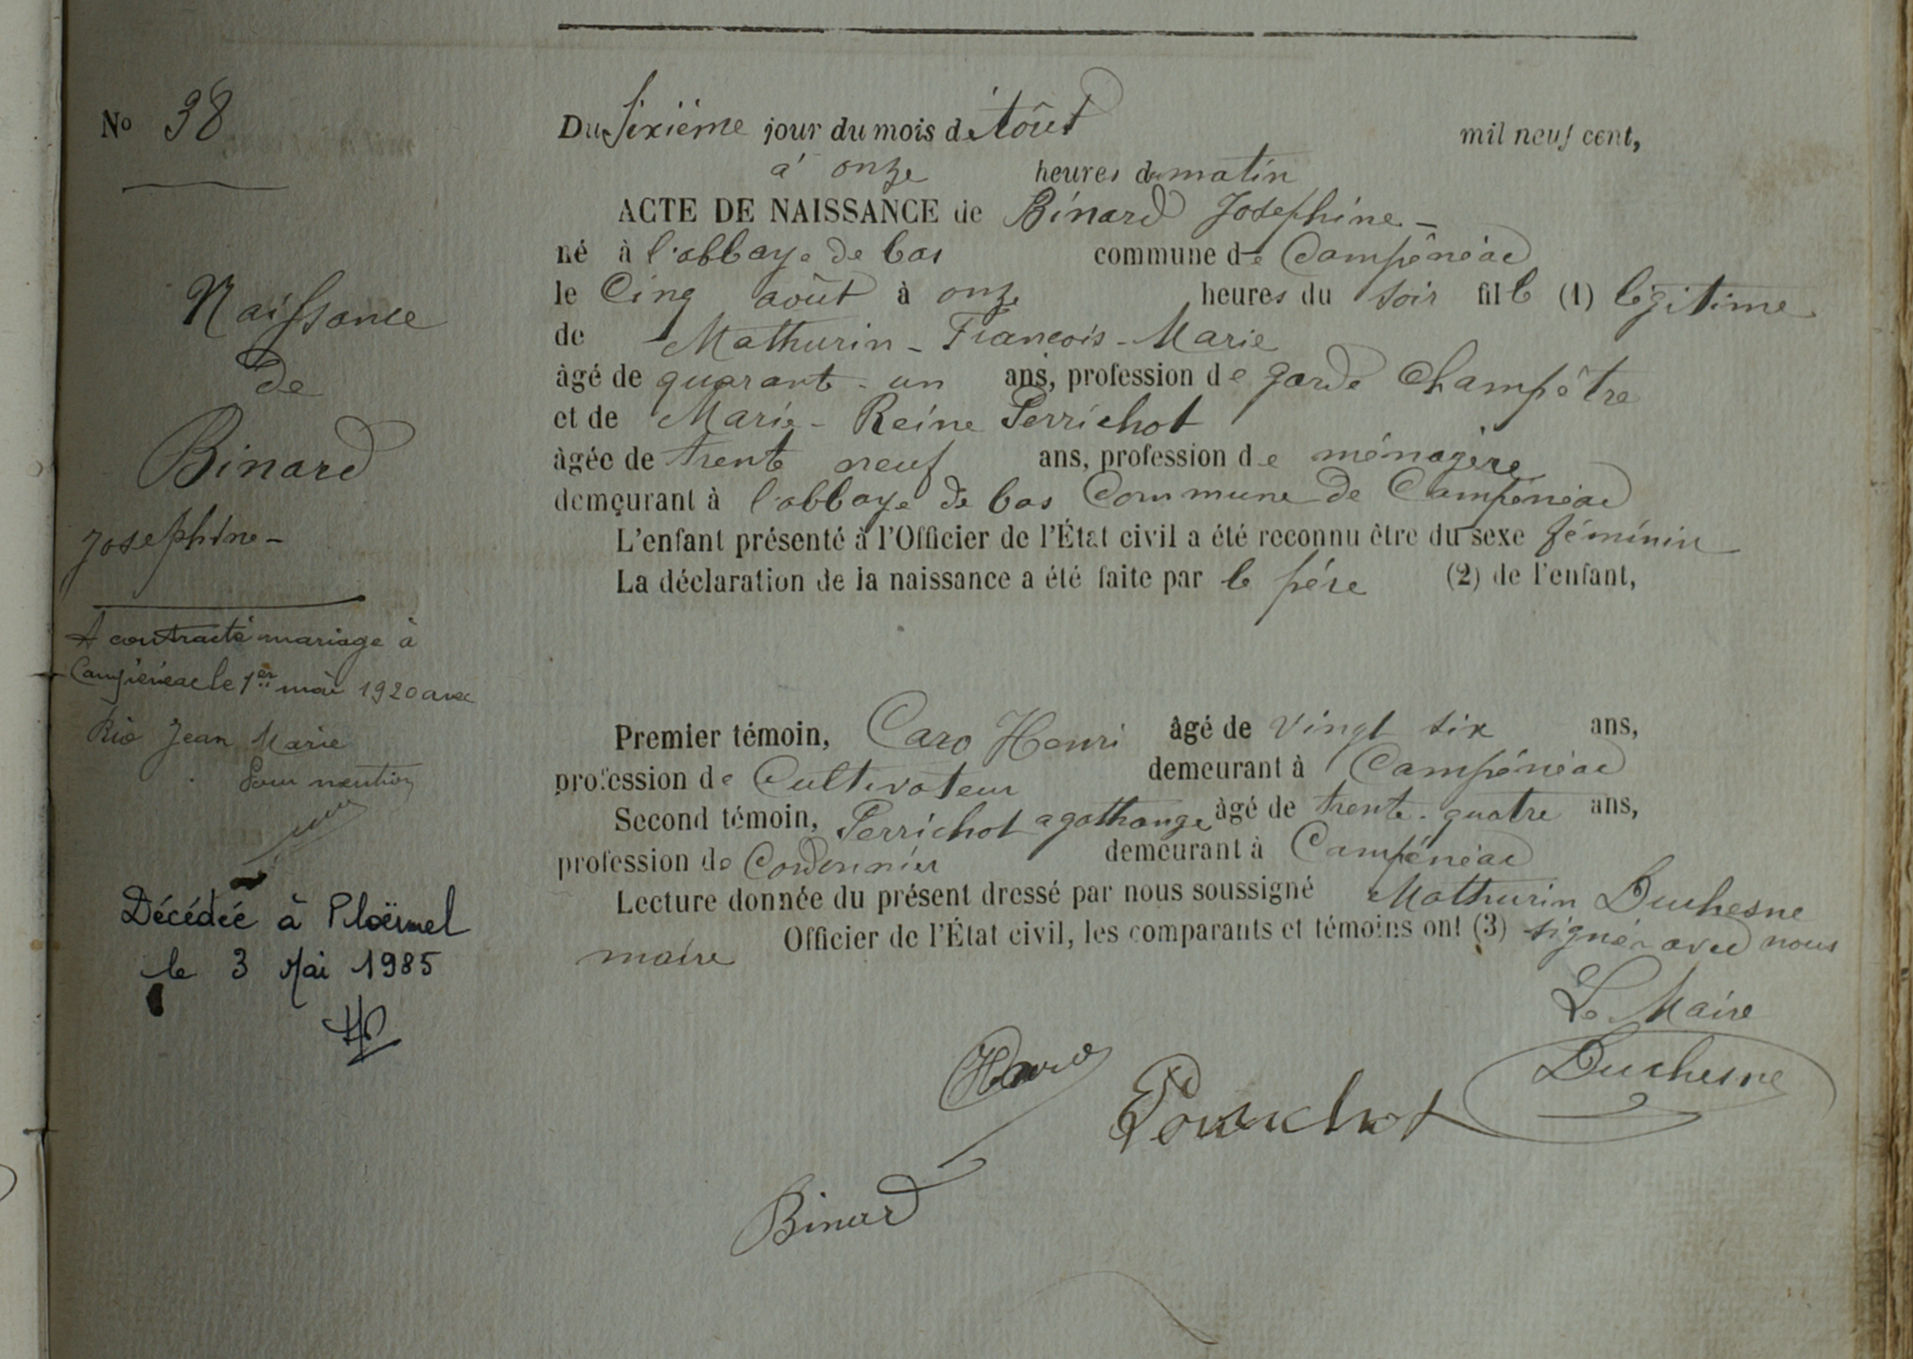 No 38
Naissance
de
Binard
Josephine -
A contracté mariage à
Campénéac le 1er mai 1920 avec
Rio Jean Marie
Pour mention
Décédée à Ploërmel
le 3 Mai 1985
Du Sixième jour du mois de Août mil neuf cent,
à onze heures du matin
ACTE DE NAISSANCE de Binard Josephine -
né à l'abbaye de bas commune de Campénéac
le Cinq août à onze heures du soir fille (1) légitime
de Mathurin - François - Marie
âgé de quarante - un ans, profession de garde champêtre
et de Marie - Reine Perrichot
âgée de trente neuf ans, profession de ménagère
demeurant à l'abbaye de bas Commune de Campénéac
L'enfant présenté à l'Officier de l'État civil a été reconnu être du sexe féminin
La déclaration de la naissance a été faite par le père (2) de l'enfant,
Premier témoin, Caro Henri âgé de vingt six ans,
profession de Cultivateur demeurant à Campénéac
Second témoin, Perrichot agathange âgé de trente - quatre ans,
profession de Cordonnier demeurant à Campénéac
Lecture donnée du présent dressé par nous soussigné Mathurin Duchesne
maire Officier de l'État civil, les comparants et témoins ont (3) signé avec nous
Le Maire
Duchesne
Perrichot
Binard